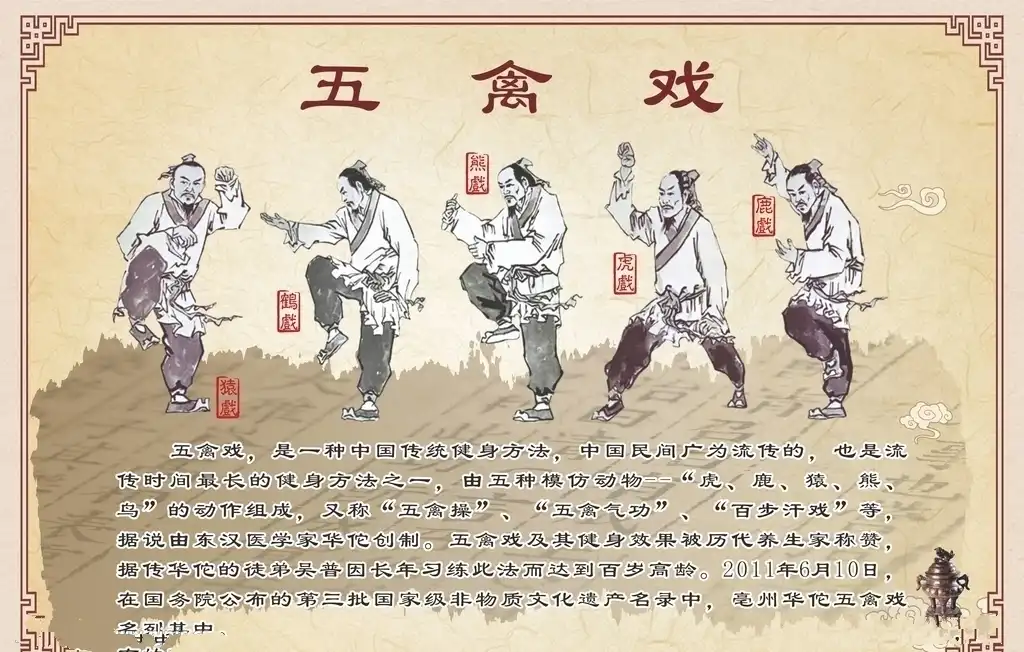 五禽戏
熊戲
鹿戲
虎戲
鶴戲
猿戲
五禽戏，是一种中国传统健身方法，中国民间广为流传的，也是流
传时间最长的健身方法之一，由五种模仿动物--“虎、鹿、猿、熊、
鸟”的动作组成，又称“五禽操”、“五禽气功”、“百步汗戏”等，
据说由东汉医学家华佗创制。五禽戏及其健身效果被历代养生家称赞，
据传华佗的徒弟吴普因长年习练此法而达到百岁高龄。2011年6月10日，
在国务院公布的第三批国家级非物质文化遗产名录中，亳州华佗五禽戏
名列其中、